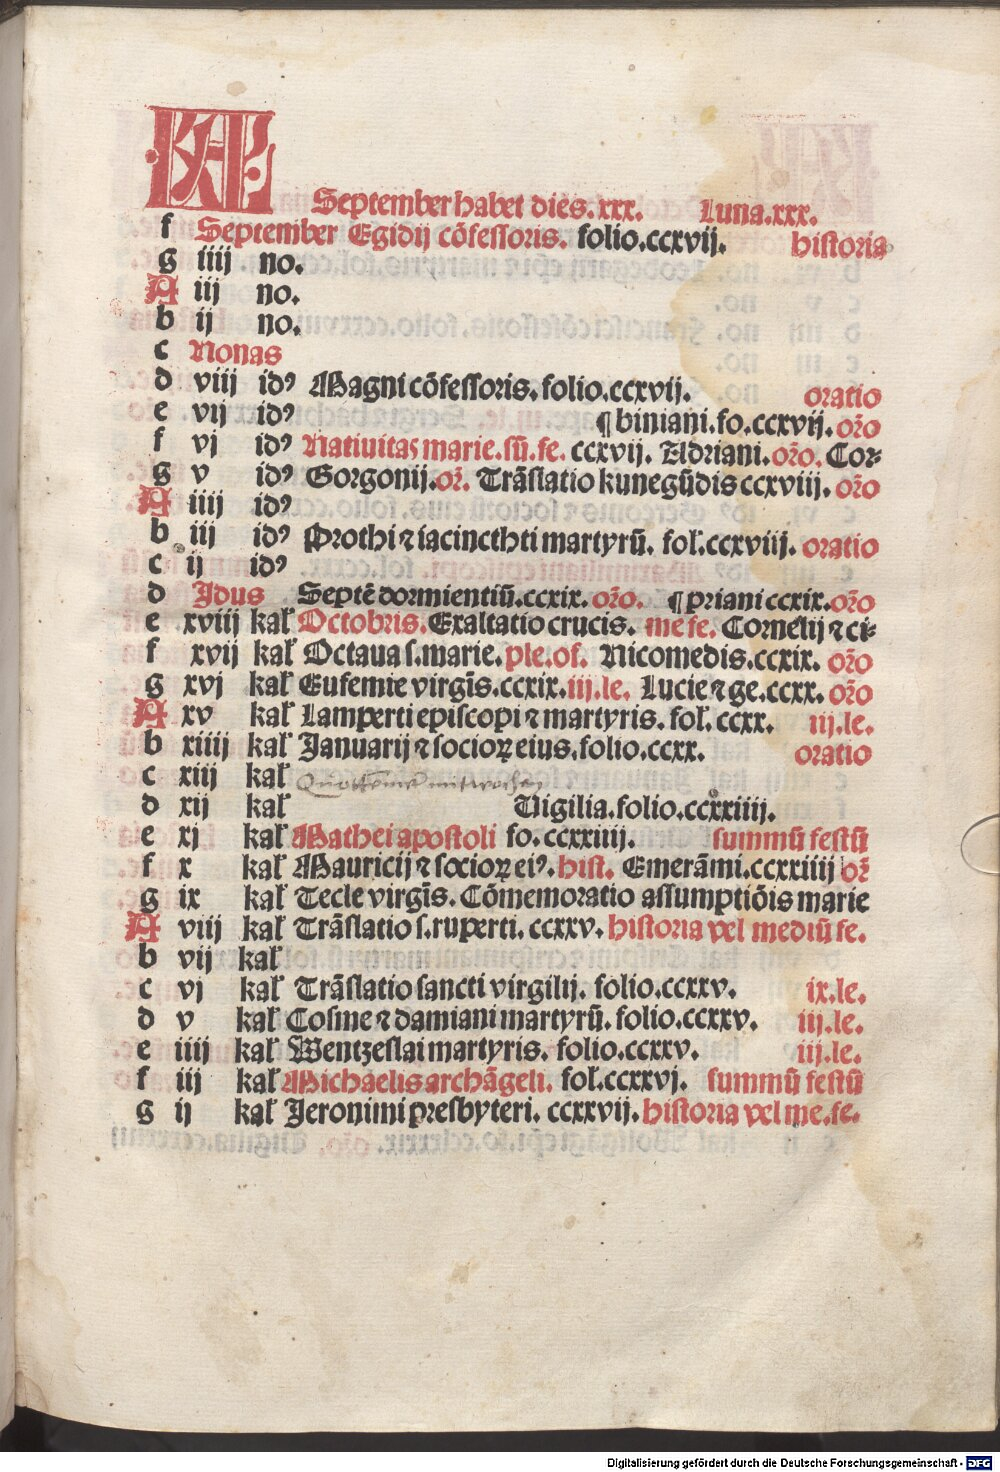 KAL
September habet dies.xxx. Luna.xxx.
f September Egidij cōfessoris. folio.ccxvij. historia
g iiij no.
A iij no.
b ij no.
c Nonas
d viij idꝰ Magni cōfessoris. folio.ccxvij. oratio
e vij idꝰ ¶ biniani. fo.ccxvij. or̄o
f vj idꝰ Natiuitas marie. sū. fe. ccxvij. Adriani. or̄o. Cor-
g v idꝰ Gorgonij. or̄. Trāslatio kunegūdis ccxviij. or̄o
A iiij idꝰ
b iij idꝰ Prothi ⁊ iacincthti martyrū. fol̄.ccxviij. oratio
c ij idꝰ
d Idus Septē dormientiū.ccxix. or̄o. ¶ priani ccxix. or̄o
e xviij kal̄ Octobris. Exaltatio crucis. me fe. Cornelij ⁊ ci-
f xvij kal̄ Octaua s. marie. ple. of. Nicomedis.ccxix. or̄o
g xvj kal̄ Eufemie virgīs.ccxix. iij. le. Lucie ⁊ ge. ccxx. or̄o
A xv kal̄ Lamperti episcopi ⁊ martyris. fol̄.ccxx. iij. le.
b xiiij kal̄ Januarij ⁊ socioꝝ eius. folio.ccxx. oratio
c xiij kal̄
d xij kal̄ Vigilia. folio.ccxxiiij.
e xj kal̄ Mathei apostoli fo.ccxxiiij. summū festū
f x kal̄ Mauricij ⁊ socioꝝ eiꝰ. hist. Emerāmi.ccxxiiij or̄
g ix kal̄ Tecle virgīs. Cōmemoratio assumptiōis marie
A viij kal̄ Trāslatio s. ruperti. ccxxv. historia vel mediū fe.
b vij kal̄
c vj kal̄ Trāslatio sancti virgilij. folio.ccxxv. ix. le.
d v kal̄ Cosme ⁊ damiani martyrū. folio.ccxxv. iij. le.
e iiij kal̄ Wentzeslai martyris. folio.ccxxv. iij. le.
f iij kal̄ Michaelis archāgeli. fol̄.ccxxvj. summū festū
g ij kal̄ Jeronimi presbyteri. ccxxvij. historia vel me. fe.
Digitalisierung gefördert durch die Deutsche Forschungsgemeinschaft - DFG